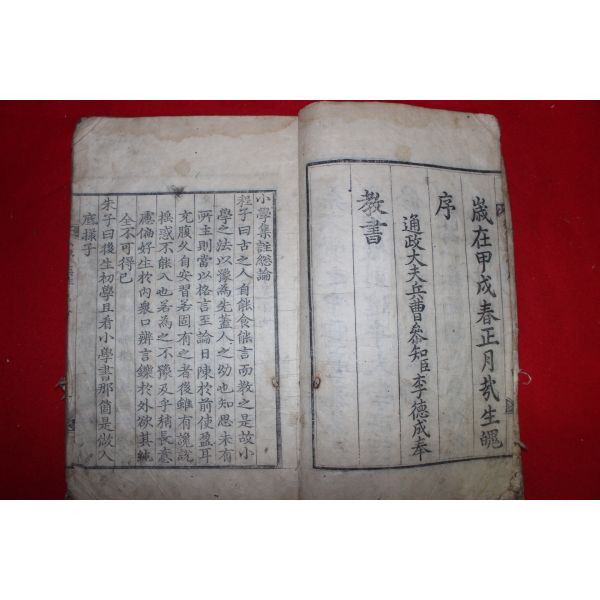 歲在甲戌春正月哉生魄
序
通政大夫兵曹參知臣李德成奉
敎書
小學集註緫論
程子曰古之人自能食能言而敎之是故小
學之法以豫爲先盖人之幼也知思未有
所主則當以格言至論日陳於前使盈耳
充腹久自安習若固有之者後雖有讒說
搖惑不能入也若爲之不豫及乎稍長意
慮偏好生於內衆口辨言鑠於外欲其純
全不可得已
朱子曰後生初學且看小學書那箇是做人
底樣子